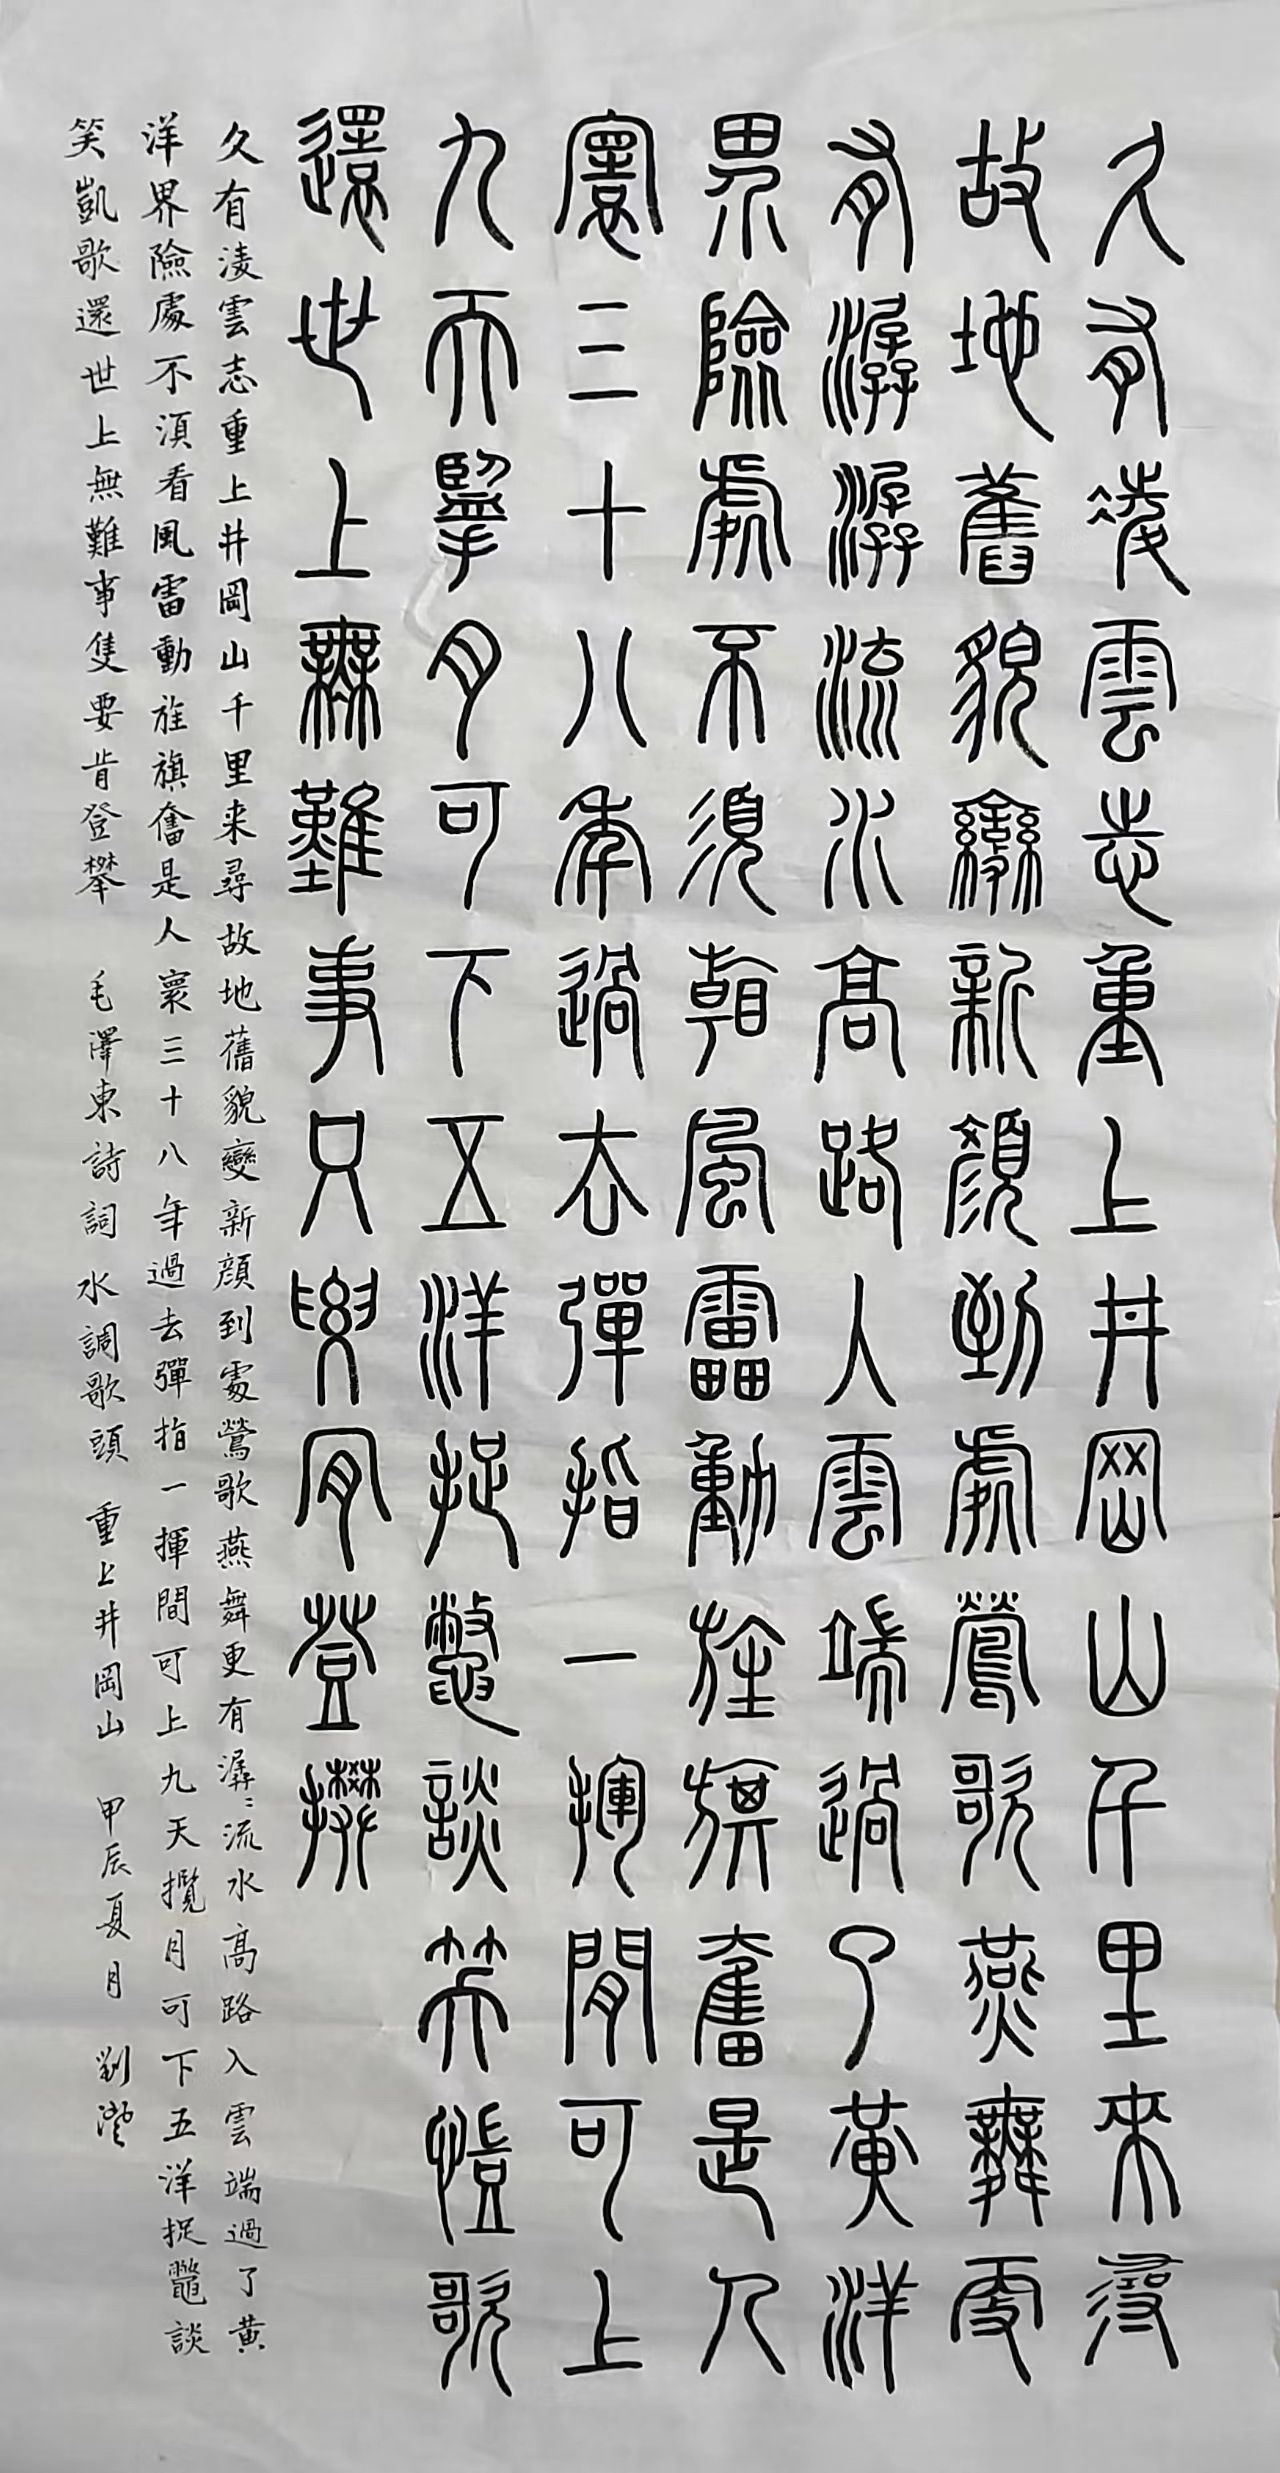 久有凌雲志重上井岡山千里來尋
故地舊貌變新顏到處鶯歌燕舞更
有潺潺流水高路入雲端過了黃洋
界險處不須看風雷動旌旗奮是人
寰三十八年過去彈指一揮間可上
九天擥月可下五洋捉鱉談笑愷歌
還世上無難事只要肯登攀
久有淩雲志重上井岡山千里来尋故地舊貌變新顔到處鶯歌燕舞更有潺〻流水高路入雲端過了黄
洋界險處不須看風雷動旌旗奮是人寰三十八年過去彈指一揮間可上九天攬月可下五洋捉鼈談
笑凱歌還世上無難事隻要肯登攀 毛澤東詩詞 水調歌頭 重上井岡山 甲辰夏月 劉